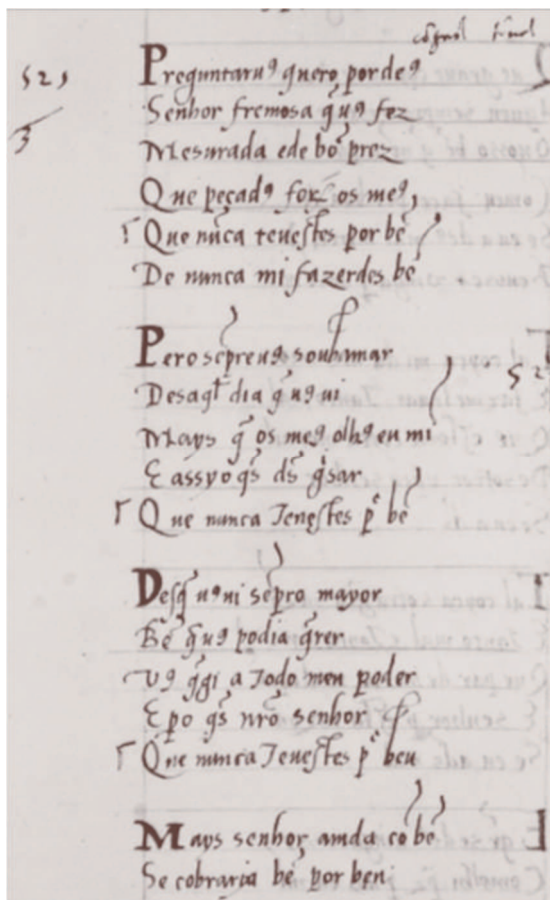 521
Preguntaruꝯ quero por deꝯ
Senhor fremosa q̄ uꝯ fez
Mesurada e de bō prez
Que pecadꝯ forō os meꝯ
Que nūca teuestes por bē
De nunca mi fazerdes bē
Pero sēpreuꝯ soub amar
Desaql dia q̄ uꝯ ui
Mays q̄ os meꝯ olhꝯ en mi
E assy o q̄s ds̄ g'sar
Que nunca Teuestes p̄ bē
Desq̄ uꝯ ui sēpro mayor
Bē q̄ uꝯ podia q̄rer
Vꝯ q̄gi a Todo meu poder
E po q̄s nrō senhor
Que nunca Teuestes p̄ ben
Mays senhor amda cō bē
Se cobraria bē por ben